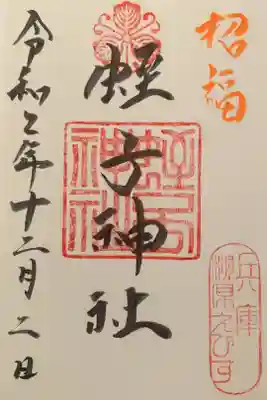 招福
蛭子神社
蛭子神社
兵庫
柳原えびす
令和2年十二月二日